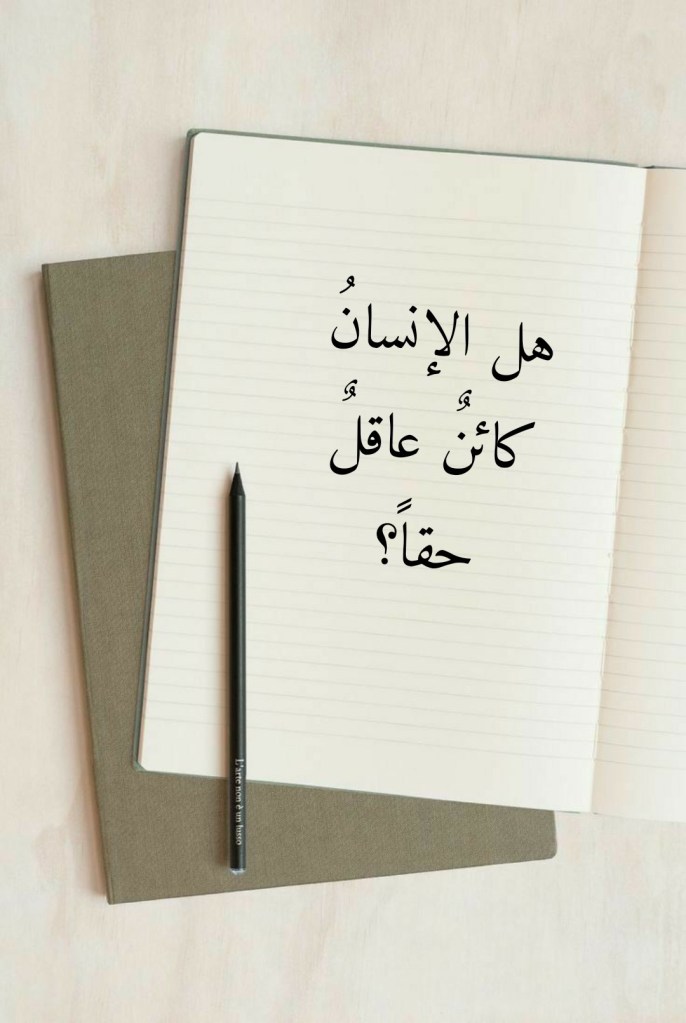 هل الإنسانُ
كائنٌ عاقلٌ
حقاً؟
L'arte non è un lusso